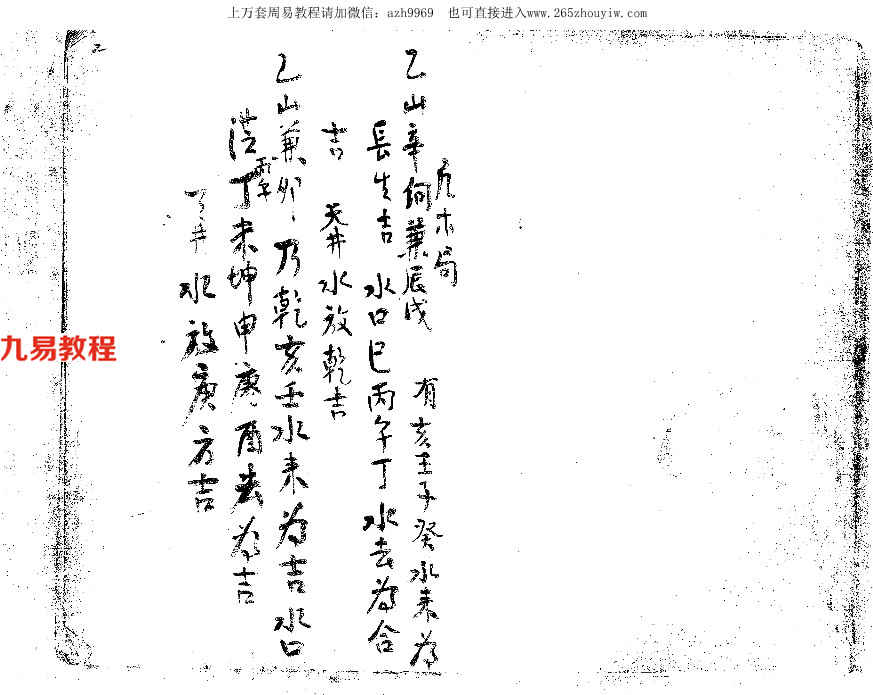 上万套周易教程请加微信：azh9969　也可直接进入www.265zhouyiw.com
木局
乙山辛向兼辰戌　有亥壬子癸水来为
長生吉　水口巳丙午丁水去为合
吉　天井水放乾吉
乙山兼卯　乃乾亥壬水来为吉水口
丁未坤申庚酉去为吉
井水放庚方吉
九易教程